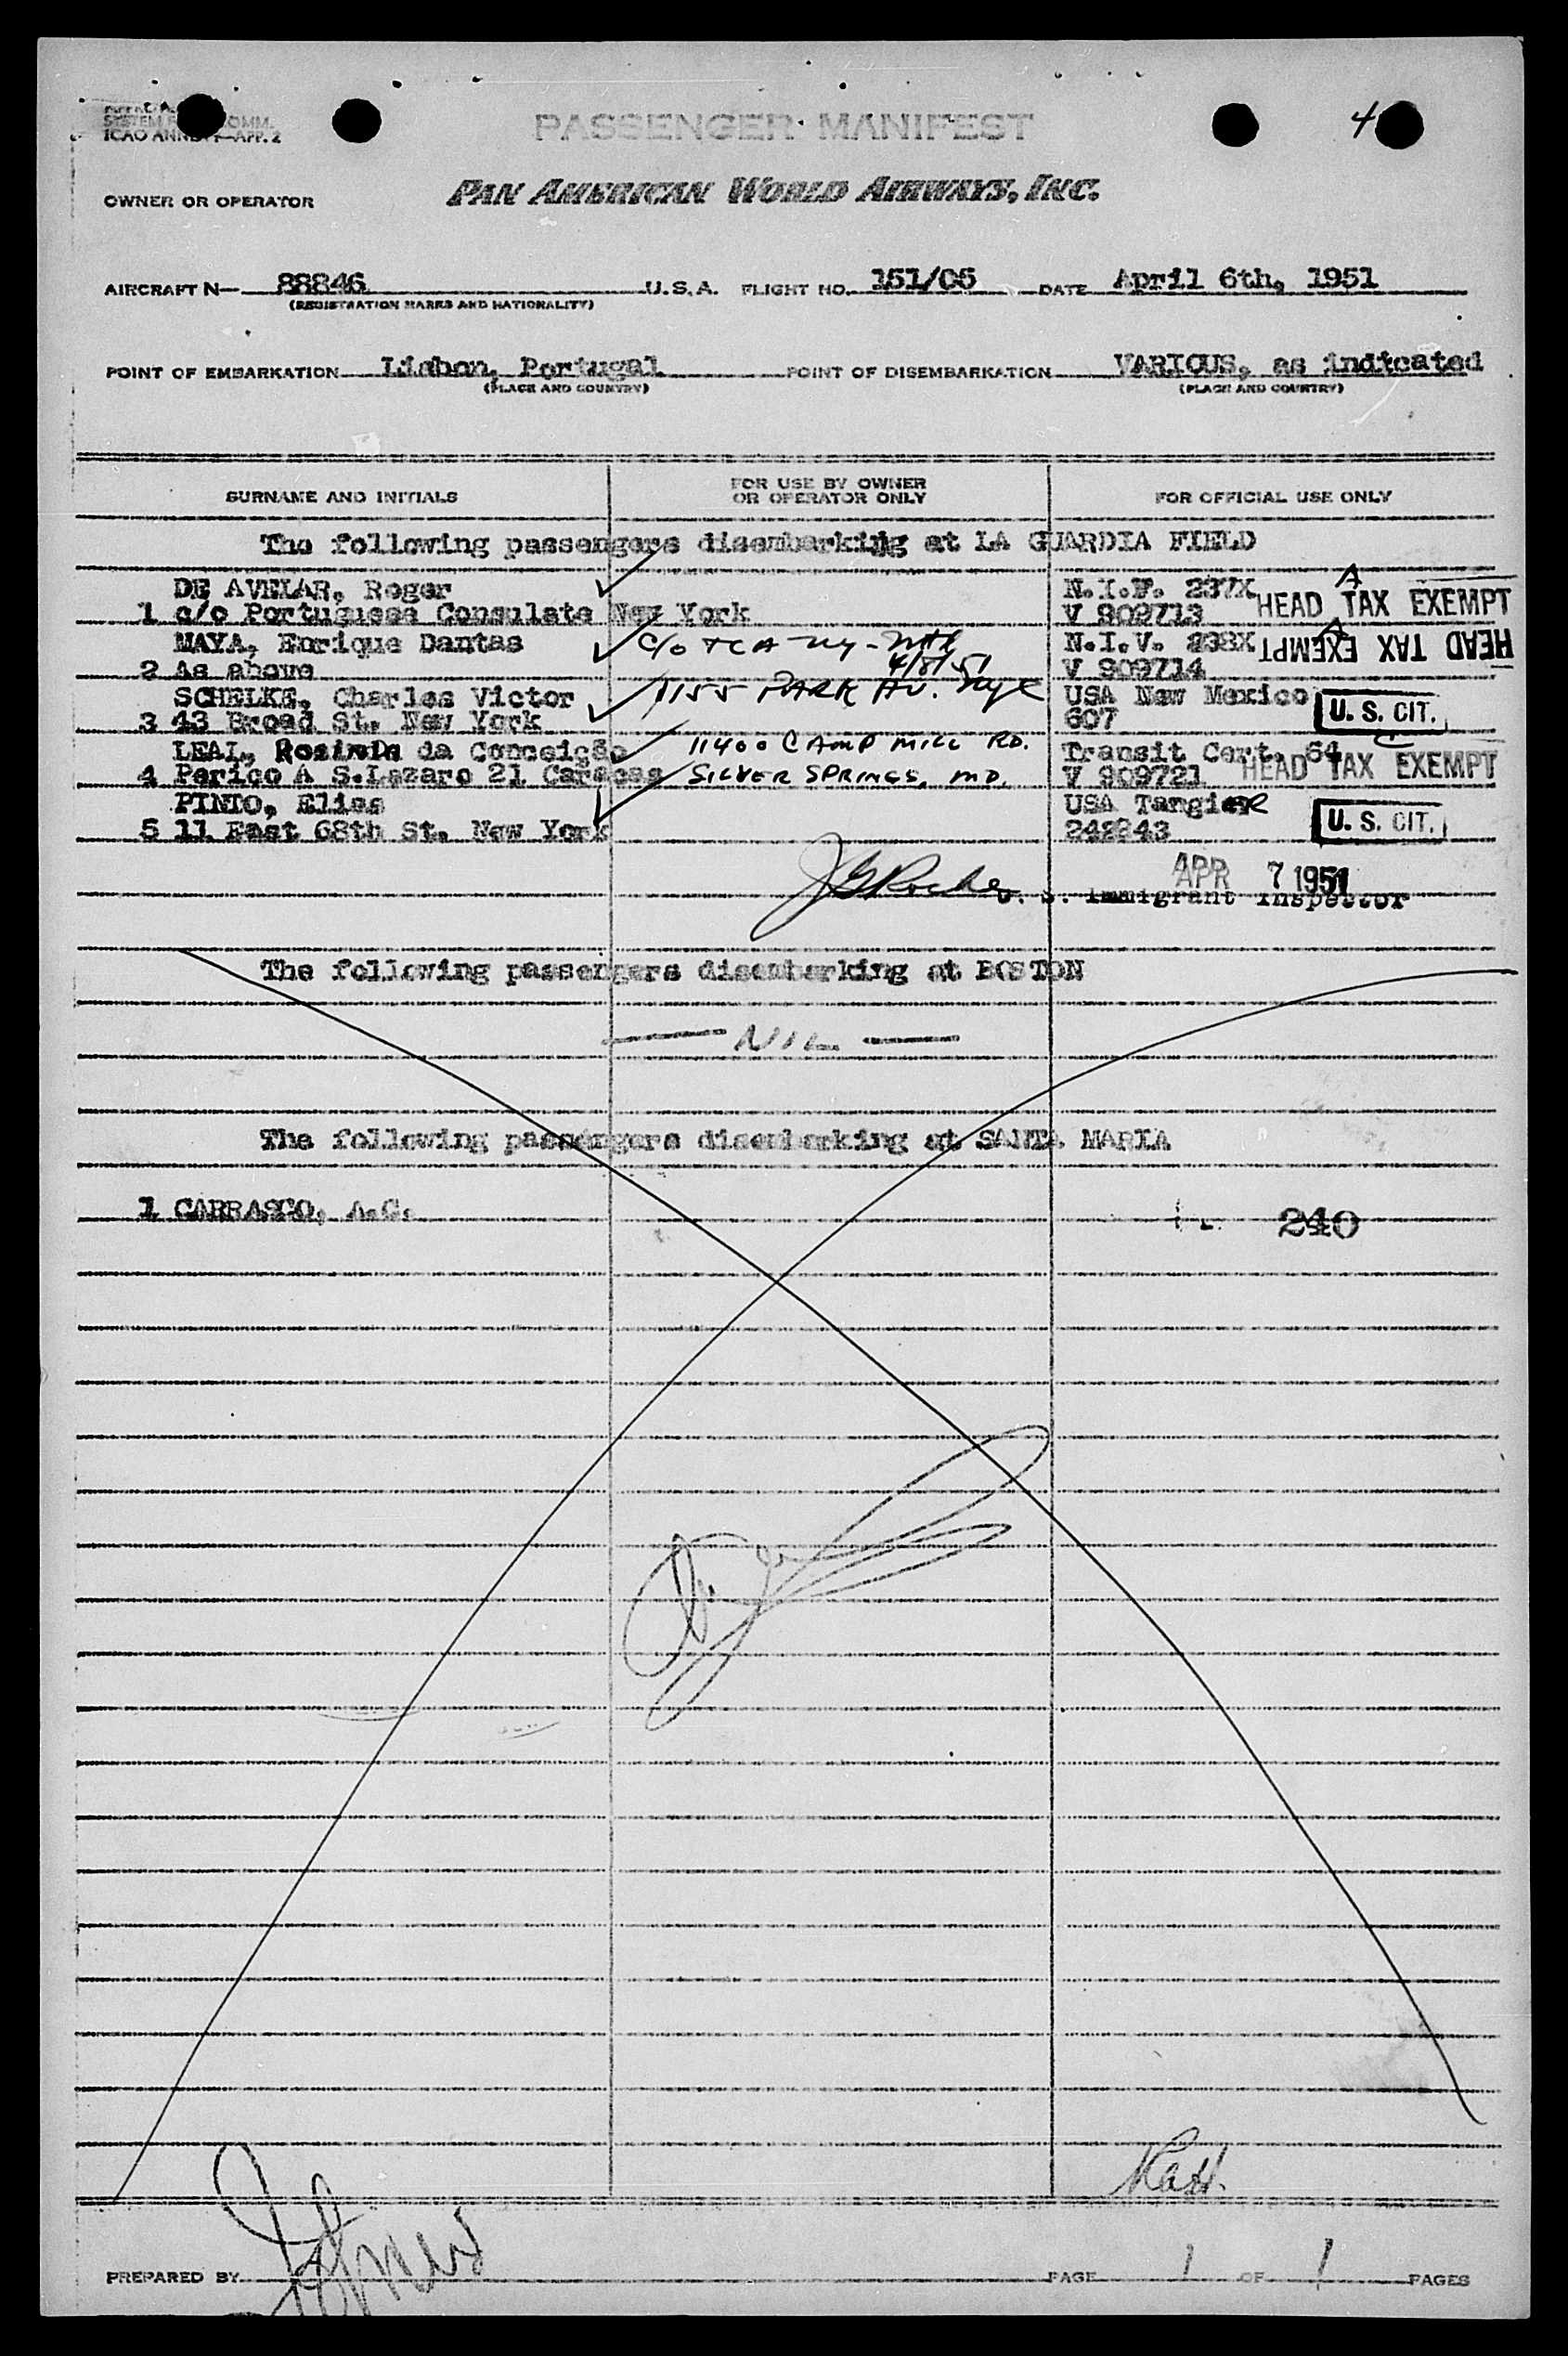 ICAO ANNEX 9—APP. 2
PASSENGER MANIFEST
4
OWNER OR OPERATOR PAN AMERICAN WORLD AIRWAYS, INC.
AIRCRAFT N— 88846 U.S.A. FLIGHT NO. 151/05 DATE April 6th, 1951
(REGISTRATION MARKS AND NATIONALITY)
POINT OF EMBARKATION Lisbon, Portugal POINT OF DISEMBARKATION VARIOUS, as indicated
(PLACE AND COUNTRY) (PLACE AND COUNTRY)
SURNAME AND INITIALS FOR USE BY OWNER OR OPERATOR ONLY FOR OFFICIAL USE ONLY
The following passengers disembarking at LA GUARDIA FIELD
DE AVELAR, Roger N.I.V. 237X A
1 c/o Portuguese Consulate New York V 909713 HEAD TAX EXEMPT
MAYA, Enrique Dantas c/o TCA - NY - N.I.V. 238X A
2 As above 4/8/51 V 909714 HEAD TAX EXEMPT
SCHELKE, Charles Victor 1155 PARK AV. NYC USA New Mexico
3 43 Broad St. New York 607 U. S. CIT.
LEAL, Rosinda da Conceição 11400 CAMP MILL RD. Transit Cert. 64 C
4 Perico A S.Lazaro 21 Caracas SILVER SPRINGS, MD. V 909721 HEAD TAX EXEMPT
PINTO, Elias USA Tangier
5 11 East 68th St. New York 242243 U. S. CIT.
APR 7 1951
U. S. Immigrant Inspector
The following passengers disembarking at BOSTON
— NIL —
The following passengers disembarking at SANTA MARIA
1 CARRASCO, A.C. 240
PREPARED BY PAGE 1 OF 1 PAGES